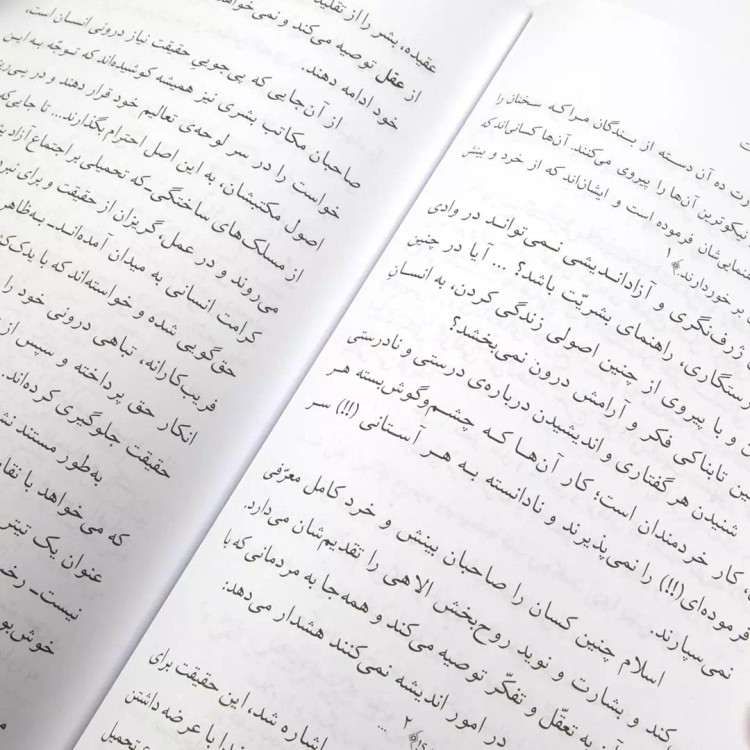 رت ده آن دسته از بندگان مرا که سخنان را
نیکوترین آن‌ها را پیروی می‌کنند. آن‌ها کسانی‌اند که
نمایی‌شان فرموده است و ایشان‌اند که از خرد و بینش
بر خوردارند.﴾ ۱
ژرف‌نگری و آزاداندیشی نمی‌توانـد در وادی
ستگاری، راهنمای بشریّت باشد؟ ... آیا در چنین
و با پیروی از چنین اصولی زندگی کردن، به انسان
تابناکی فکر و آرامش درون نمی‌بخشد؟
شنیدن هر گفتاری و اندیشیدن درباره‌ی درستی و نادرستی
، کار خردمندان است؛ کار آن‌هـا کـه چشـم‌وگوش‌بسته هـر
فرموده‌ای(!!) را نمی‌پذیرند و نادانسته بـه هـر آسـتانی (!!) سـر
نمی‌سپارند.
اسلام چنین کسان را صاحبان بینش و خرد کامل معرّفی
کند و بشارت و نوید روح‌بخش الاهی را تقدیم‌شان می‌دارد.
به تعقّل و تفکّر توصیه می‌کند و همه‌جا به مردمانی که با
در امور اندیشه نمی‌کنند هشدار می‌دهد:
﴾ ۲ ...
اشاره شد، این حقیقت برای
با عرضه داشتن
تحمیل
عقیده، بشر را از تقلید
از عقل توصیه می‌کند و نمی‌خواهد
خود ادامه دهند.
از آن‌جایی که پی‌جویی حقیقت نیاز درونی انسان است،
صاحبان مکاتب بشری نیز همیشه کوشیده‌اند که توجّه بـه ایـن
خواست را در سر لوحه‌ی تعالیم خود قرار دهند و در پی‌ریزی
اصول مکتبشان، به این اصل احترام بگذارند... تا جایی‌که
از مسلک‌های ساختگی-که تحمیلی بر اجتماع آزاد
می‌روند و در عمل، گریزان از حقیقت و برای نبرد
کرامت انسانی به میدان آمده‌انـد- بـه‌ظاهر
حق‌گویی شده و خواسته‌اند که با یدک‌
فریب‌کارانه، تباهی درونی خود را
انکار حق پرداخته و سپس از
حقیقت جلوگیری کرده‌اند.
به‌طور مستند
که می‌خواهد با
عنوان یک تیتر
نیست-
خوش‌